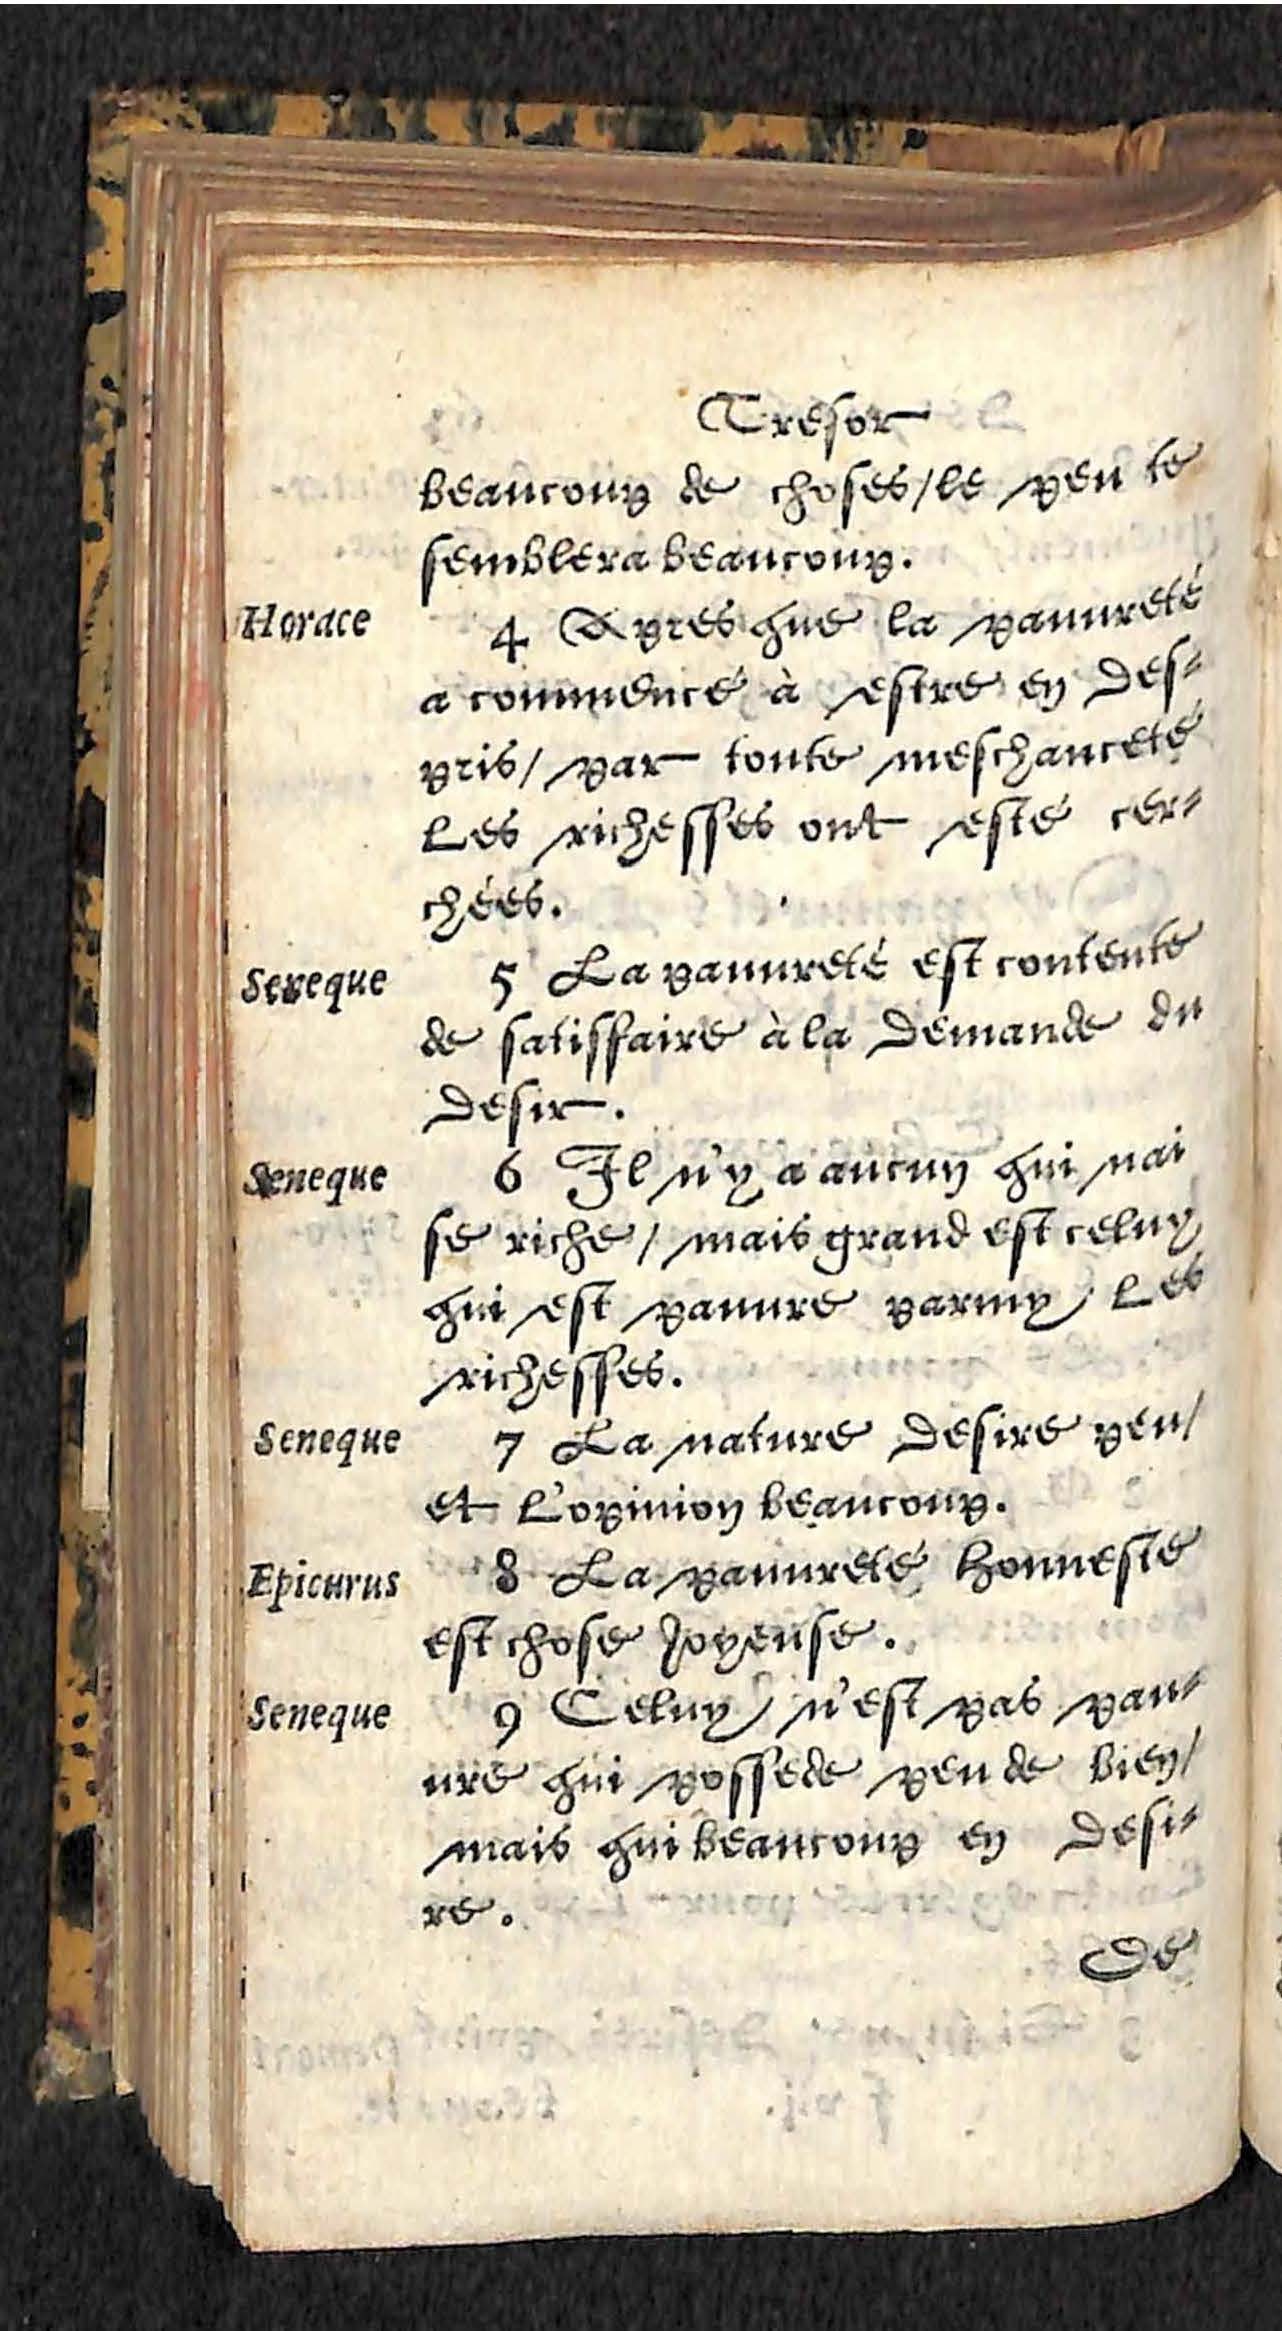 Tresor
beaucoup de choses/le peu te
semblera beaucoup.
Horace
4 Apres que la pauureté
a commencé à estre en des-
pris/ par toute meschanceté
Les richesses ont esté cer-
chées.
Seneque
5 La pauureté est contente
de satisfaire à la demande du
desir.
Seneque
6 Il n'y a aucun qui nai
se riche/ mais grand est celuy
qui est pauure parmy Les
richesses.
Seneque
7 La nature desire peu/
et L'opinion beaucoup.
Epicurus
8 La pauureté honneste
est chose Joyeuse.
Seneque
9 Celuy n'est pas pau-
ure qui possede peu de bien/
mais qui beaucoup en desi-
re.
De